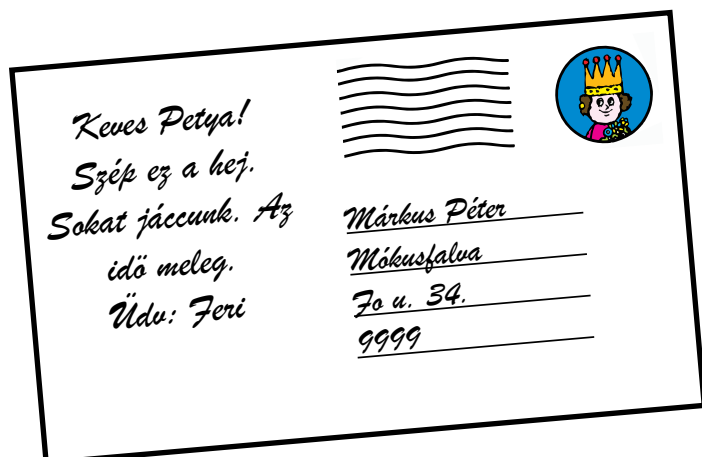 Keves Petya!
Szép ez a hej.
Sokat jáccunk. Az
idö meleg.
Üdv: Feri
Márkus Péter
Mókusfalva
Fo u. 34.
9999